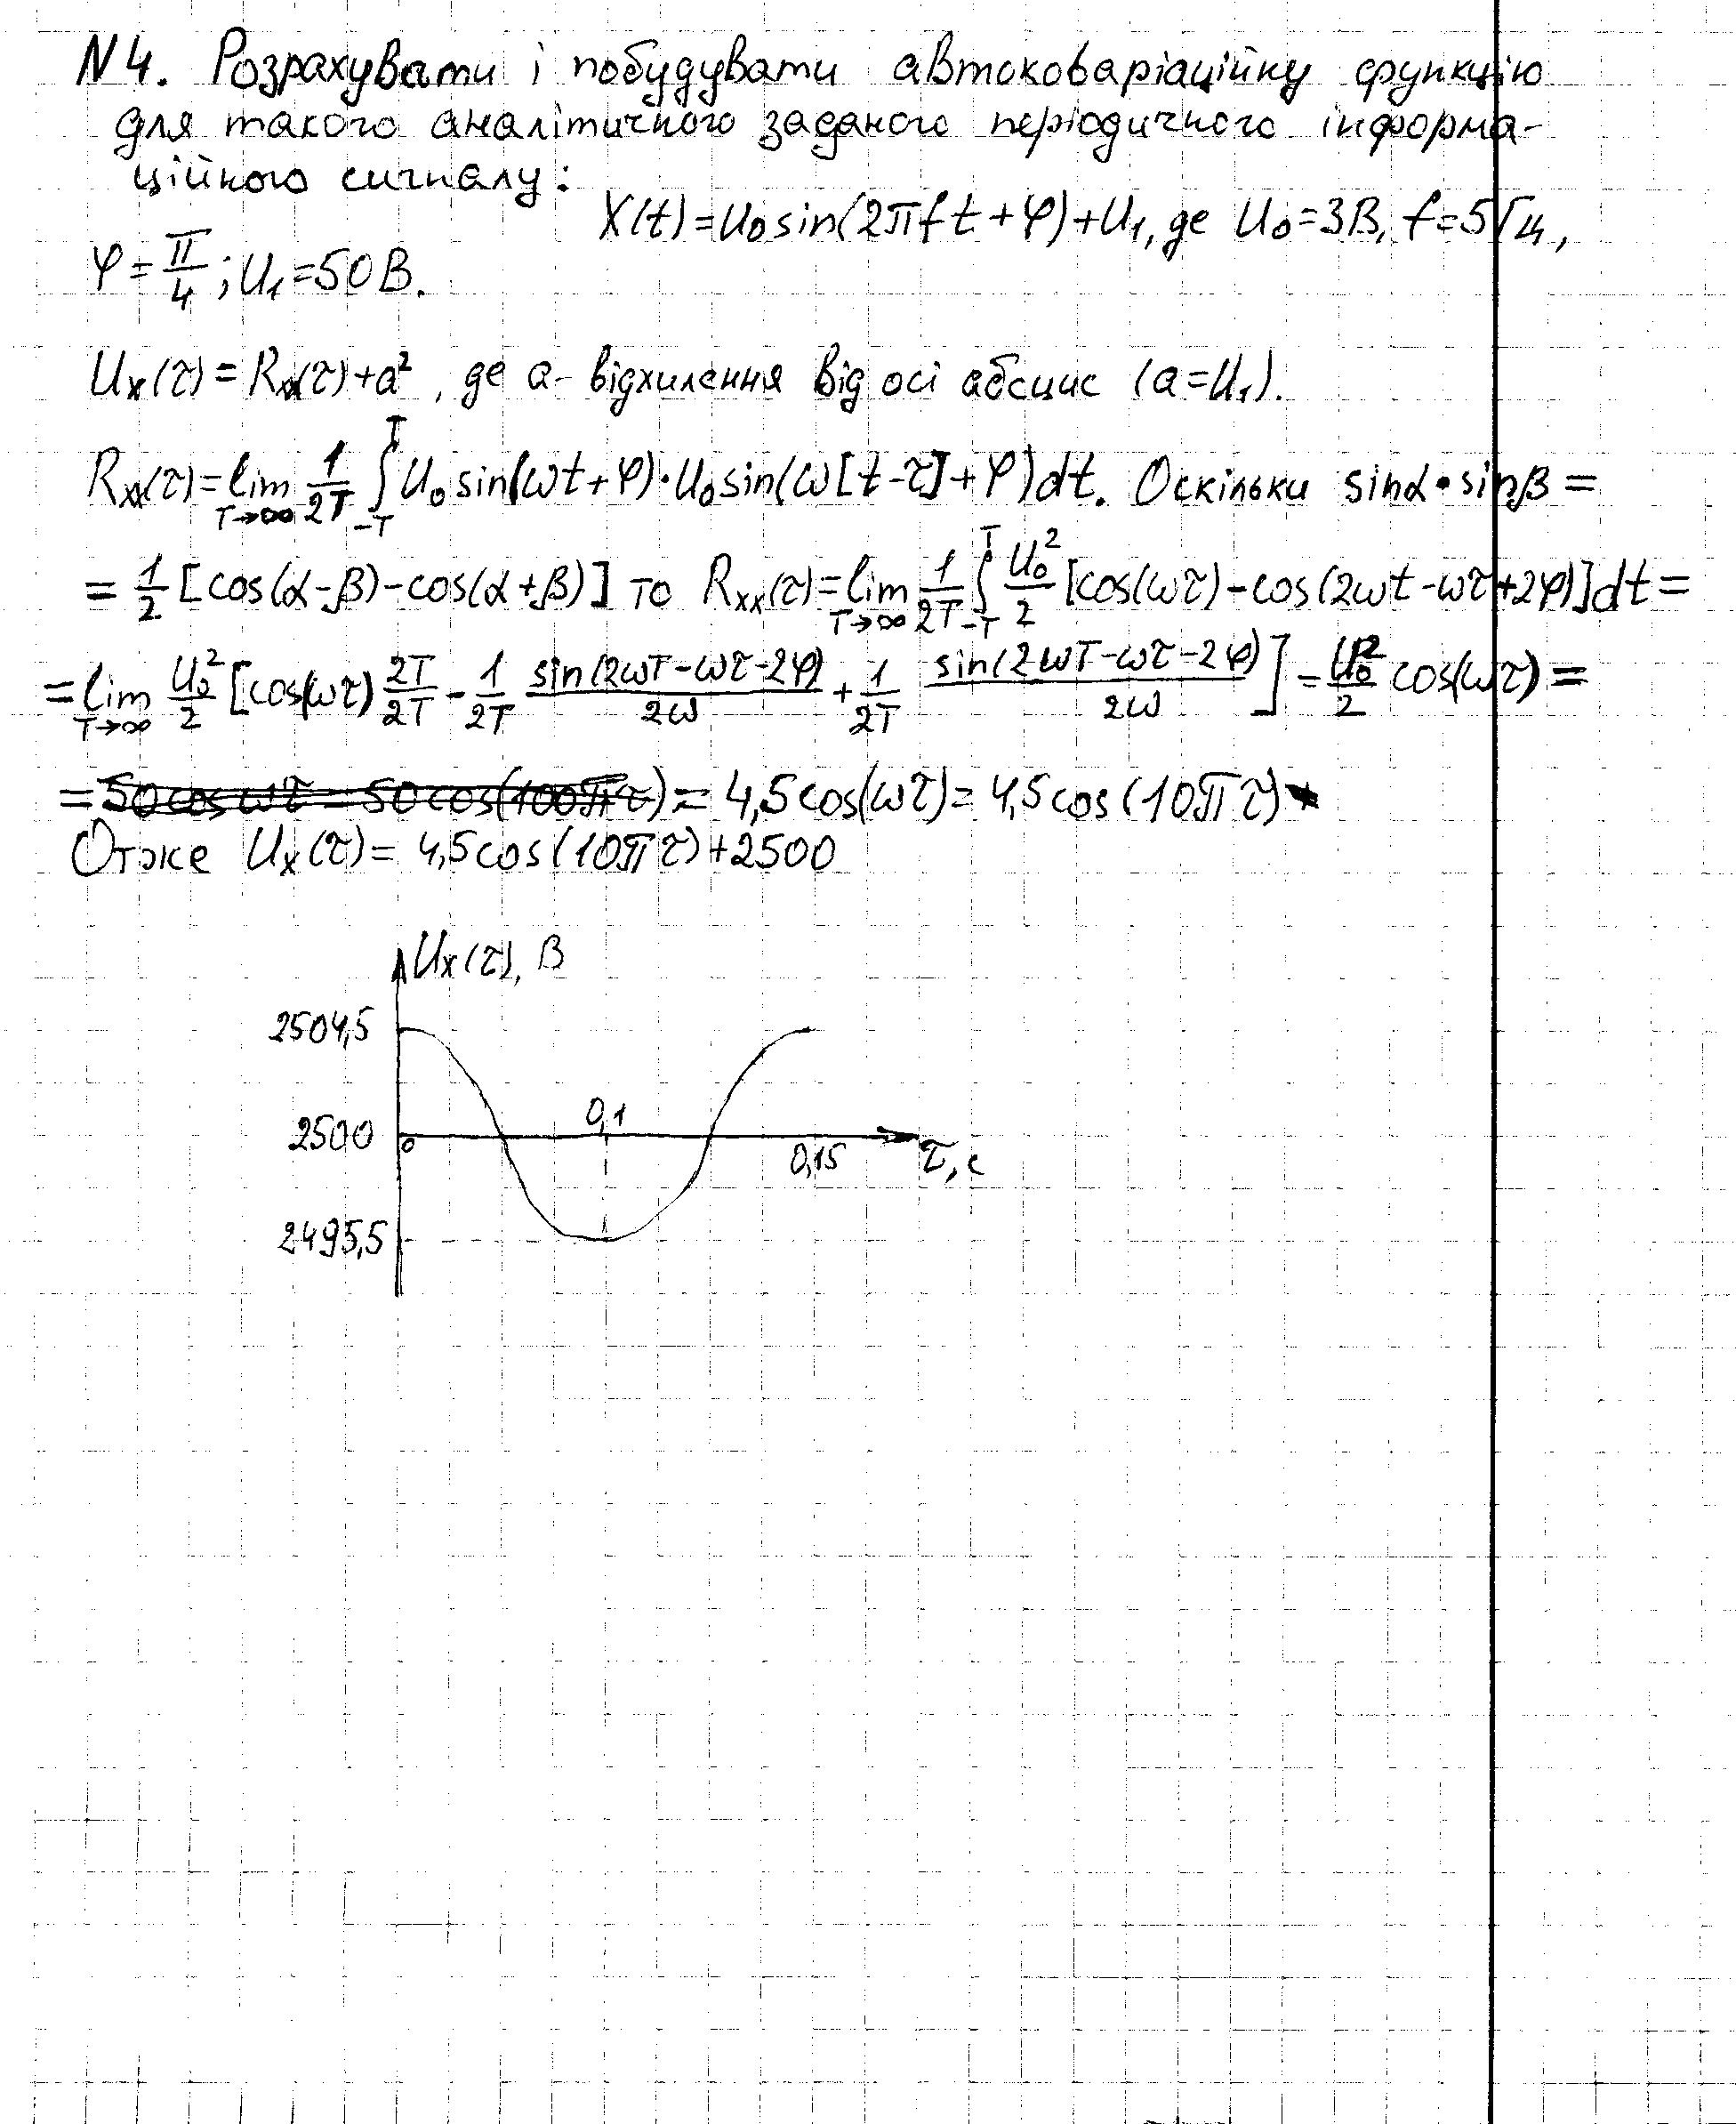 N4. Розрахувати і побудувати автоковаріаційну функцію
для такого аналітичного заданого періодичного інформа-
ційного сигналу:
X(t)=U₀sin(2πft+φ)+U₁, де U₀=3В, f=5Гц,
φ=π/4; U₁=50В.
Uₓ(τ)=Rₓₓ(τ)+a², де a- відхилення від осі абсцис (a=U₁).
Rₓₓ(τ)=lim T→∞ 1/2T ∫ -T T U₀sin(ωt+φ)·U₀sin(ω[t-τ]+φ)dt. Оскільки sinα•sinβ=
=1/2[cos(α-β)-cos(α+β)] то Rₓₓ(τ)=lim T→∞ 1/2T ∫ -T T U₀²/2[cos(ωτ)-cos(2ωt-ωτ+2φ)]dt=
=lim T→∞ U₀²/2[cos(ωτ) 2T/2T - 1/2T sin(2ωT-ωτ-2φ)/2ω + 1/2T sin(2ωT-ωτ-2φ)/2ω]=U₀²/2 cos(ωτ)=
=50cosωτ=50cos(100πτ)=4,5cos(ωτ)=4,5cos(10πτ)
Отже Uₓ(τ)=4,5cos(10πτ)+2500
Uₓ(τ), В
2504,5
0,1
2500
0
0,15
τ, с
2495,5